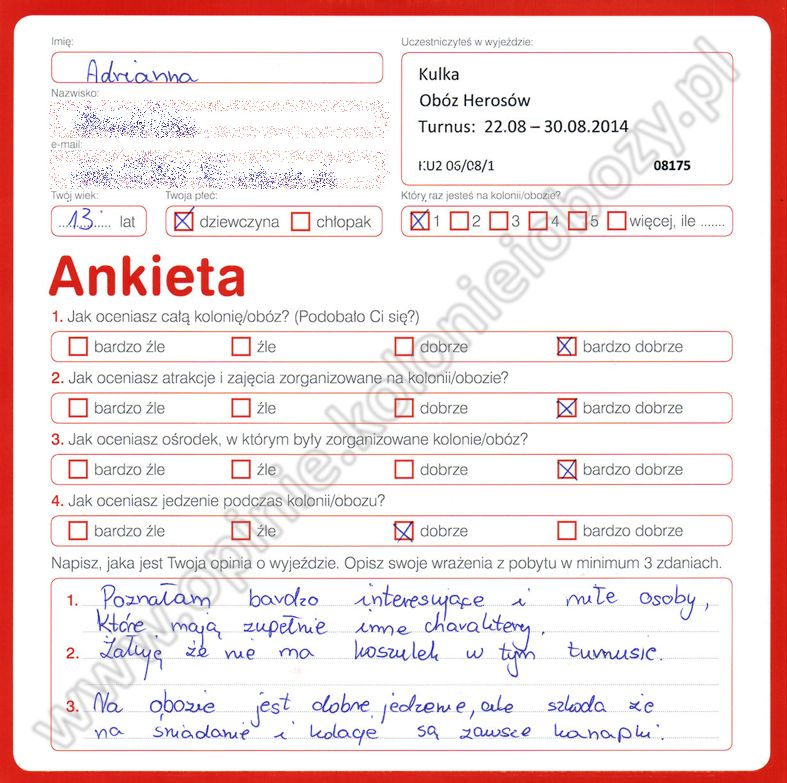 Imię:
Adrianna
Uczestniczyłeś w wyjeździe:
Kulka
Obóz Herosów
Turnus: 22.08 – 30.08.2014
KU2 06/08/1 08175
Nazwisko:
e-mail:
Twój wiek:
13 lat
Twoja płeć:
dziewczyna chłopak
Który raz jesteś na kolonii/obozie?
1 2 3 4 5 więcej, ile .......
Ankieta
1. Jak oceniasz całą kolonię/obóz? (Podobało Ci się?)
bardzo źle źle dobrze bardzo dobrze
2. Jak oceniasz atrakcje i zajęcia zorganizowane na kolonii/obozie?
bardzo źle źle dobrze bardzo dobrze
3. Jak oceniasz ośrodek, w którym były zorganizowane kolonie/obóz?
bardzo źle źle dobrze bardzo dobrze
4. Jak oceniasz jedzenie podczas kolonii/obozu?
bardzo źle źle dobrze bardzo dobrze
Napisz, jaka jest Twoja opinia o wyjeździe. Opisz swoje wrażenia z pobytu w minimum 3 zdaniach.
1. Poznałam bardzo interesujące i miłe osoby,
które mają zupełnie inne charaktery.
2. Żałuję że nie ma koszulek w tym turnusie.
3. Na obozie jest dobre jedzenie, ale szkoda że
na śniadanie i kolacje są zawsze kanapki.
www.opinie.kolonieiobozy.pl